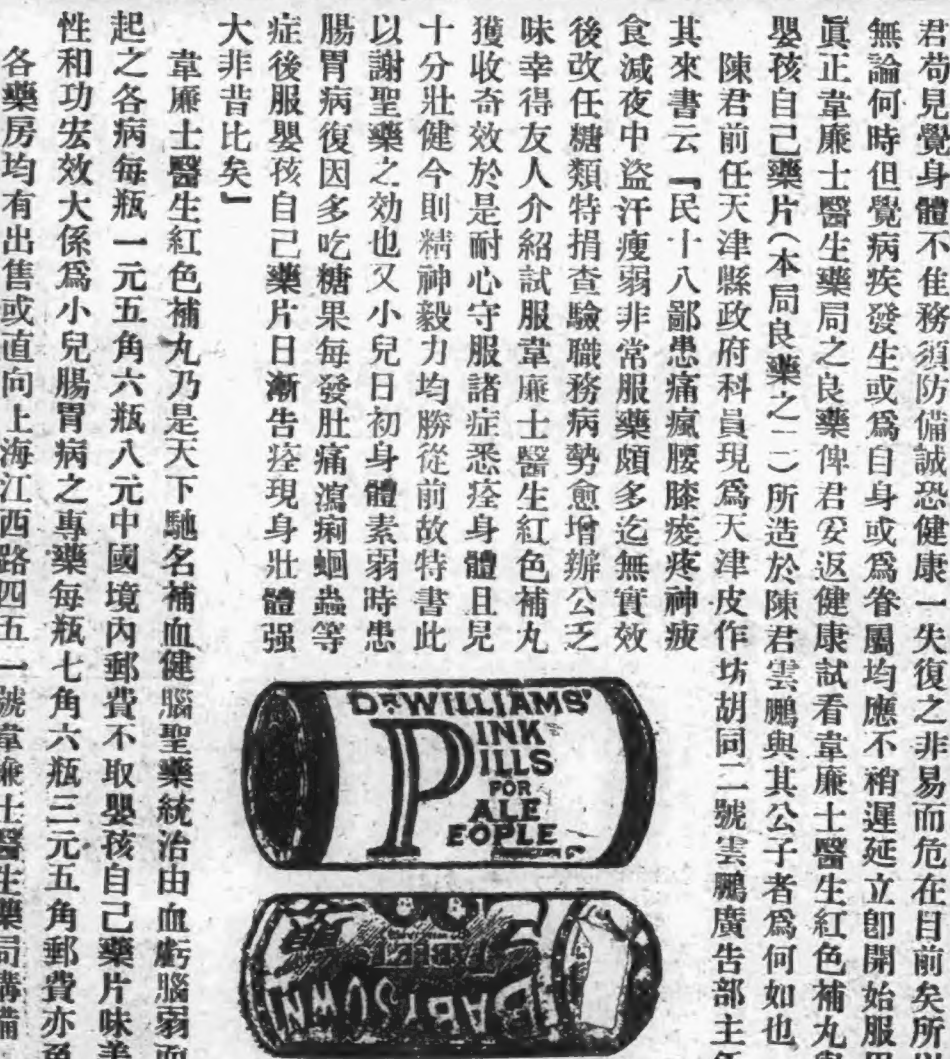 君苟見覺身體不佳務須防備誠恐健康一失復之非易而危在目前矣所
無論何時但覺病疾發生或爲自身或爲眷屬均應不稍遲延立卽開始服
眞正韋廉士醫生藥局之良藥俾君安返健康試看韋廉士醫生紅色補丸
嬰孩自己藥片(本局良藥之二)所造於陳君雲鵬與其公子者爲何如也
陳君前任天津縣政府科員現爲天津皮作坊胡同二號雲鵬廣告部主
其來書云『民十八鄙患痛瘋腰膝痠疼神疲
食減夜中盜汗瘦弱非常服藥頗多迄無實效
後改任糖類特捐查驗職務病勢愈增辦公乏
味幸得友人介紹試服韋廉士醫生紅色補丸
獲收奇效於是耐心守服諸症悉痊身體且見
十分壯健今則精神毅力均勝從前故特書此
以謝聖藥之効也又小兒日初身體素弱時患
腸胃病復因多吃糖果每發肚痛瀉痢蛔蟲等
症後服嬰孩自己藥片日漸告痊現身壯體强
大非昔比矣』
韋廉士醫生紅色補丸乃是天下馳名補血健腦聖藥統治由血虧腦弱而
起之各病每瓶一元五角六瓶八元中國境內郵費不取嬰孩自己藥片味美
性和功宏效大係爲小兒腸胃病之專藥每瓶七角六瓶三元五角郵費亦
各藥房均有出售或直向上海江西路四五一號韋廉士醫生藥局購備
DR WILLIAMS'
PINK
PILLS
FOR
PALE
PEOPLE
BABY'S OWN